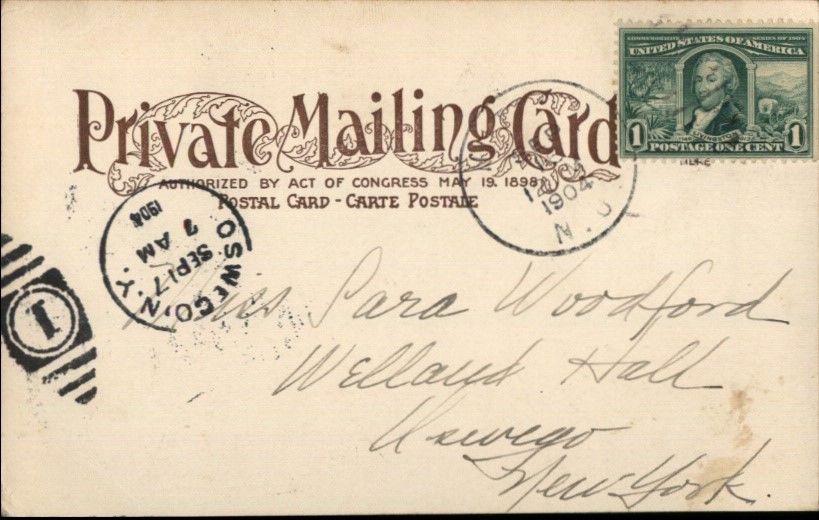 COMMEMORATIVE SERIES OF 1904
UNITED STATES OF AMERICA
LIVINGSTON
1 POSTAGE ONE CENT 1
HERE
Private Mailing Card
AUTHORIZED BY ACT OF CONGRESS MAY 19. 1898.
POSTAL CARD - CARTE POSTALE
1904
N.
OSWEGO. N.Y.
SEP 17
7 AM
1904
1
Miss Sara Woodford
Welland Hall
Oswego
New York.